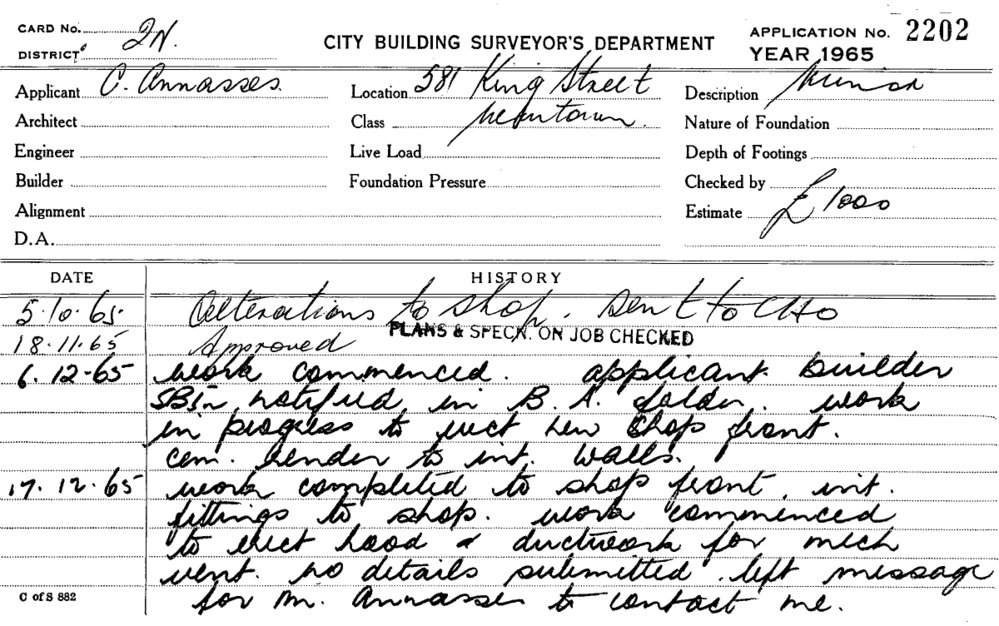 CARD No. 2N.
DISTRICT
CITY BUILDING SURVEYOR'S DEPARTMENT
APPLICATION No. 2202
YEAR 1965
Applicant C. Annasses.
Location 581 King Street
Description Minor
Architect
Class Newtown.
Nature of Foundation
Engineer
Live Load
Depth of Footings
Builder
Foundation Pressure
Checked by
Alignment
Estimate £1000
D.A.
DATE HISTORY
5.10.65. Alterations to shop. Sent to CHO
PLANS & SPECN. ON JOB CHECKED
18.11.65 Approved
6.12.65 work commenced. applicant builder
notified in B.A. folder. work
in progress to erect new shop front.
cem. render to int. walls.
17.12.65 work completed to shop front, int.
fittings to shop. work commenced
to erect hood & ductwork for mech
vent. no details submitted. left message
for Mr. Annasses to contact me.
C of S 882